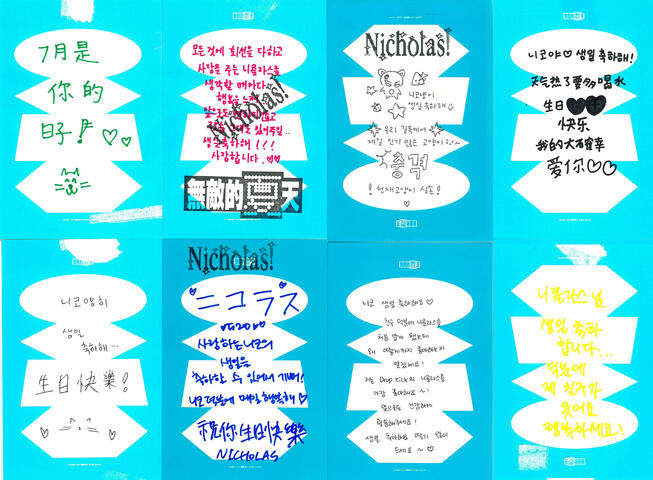 7月是
你的
日子!♡♡
모든것에 최선을 다하고
사랑을 주는 니콜라스를
생각할 때마다
행복을
Nicholas!
있어주길..
생일축하해!!!
사랑합니다.♡♡
無敵的夏天
Nicholas!
니코냥이
생일축하해
우리 길목에서
제일 인기 많은 고양이
충격
! 천재고양이 실존!
니코야♡ 생일 축하해!
天气热了要多喝水
生日
快乐
我的大确幸
爱你♡♡
니코양히
생일
축하해...
生日快樂!
Nicholas!
ニコラス
사랑하는 니코의
생일을
축하할 수 있어서 기뻐!
니코 덕분에 매일 행복해♡
祝你生日快樂
NICHOLAS
니코 생일 축하해요♡
친구 덕분에 니콜라스를
처음 알게 됐는데
왜 이렇게까지 좋아하는지
알겠네요!
저는 Drop kick의 니콜라스를
가장 좋아해요~!
앞으로도 건강하게
활동해주세요!
생일 축하해요
드세요~♡
니콜라스님
생일 축하
합니다...
덕분에
제 친구가
웃어요
행복하세요!